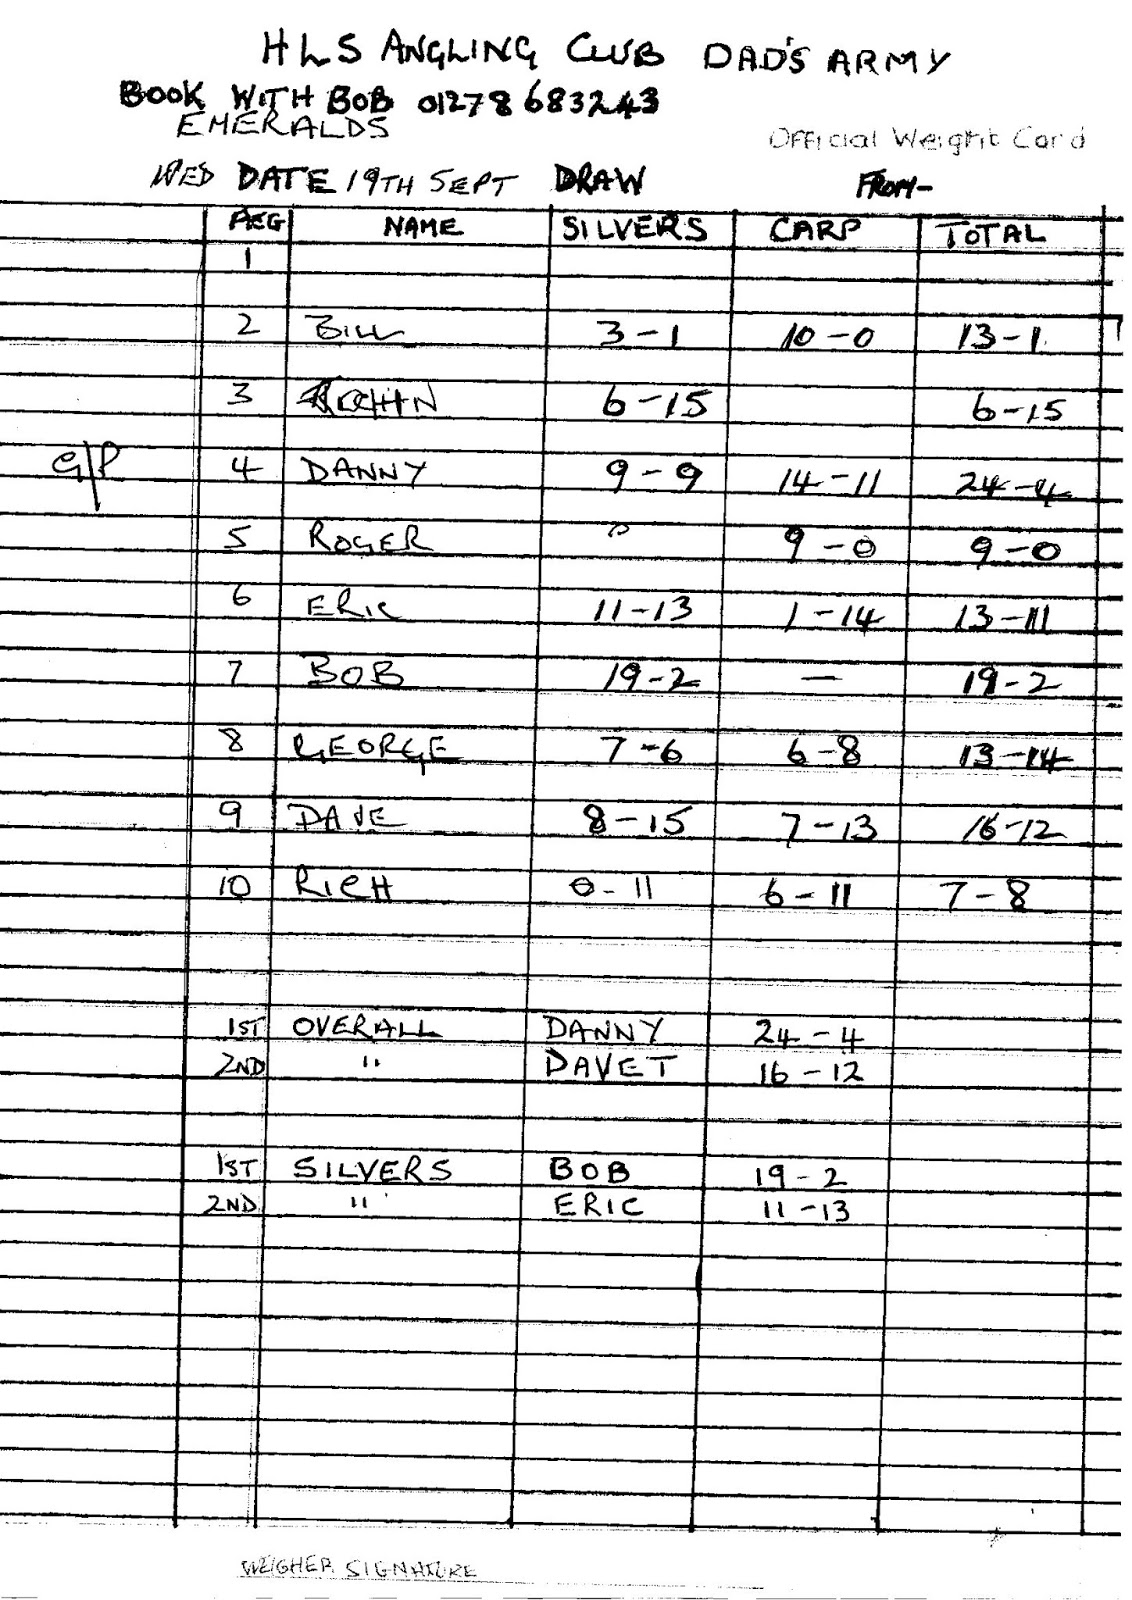 HLS ANGLING CLUB DAD'S ARMY
BOOK WITH BOB 01278 683243
EMERALDS
Official Weight Card
WED DATE 19TH SEPT DRAW FROM-
PEG NAME SILVERS CARP TOTAL
1
2 BILL 3-1 10-0 13-1
3 6-15 6-15
G/P 4 DANNY 9-9 14-11 24-4
5 ROGER 0 9-0 9-0
6 ERIC 11-13 1-14 13-11
7 BOB 19-2 — 19-2
8 GEORGE 7-6 6-8 13-14
9 DAVE 8-15 7-13 16-12
10 RICH 0-11 6-11 7-8
1ST OVERALL DANNY 24-4
2ND " DAVET 16-12
1ST SILVERS BOB 19-2
2ND " ERIC 11-13
WEIGHER SIGNATURE